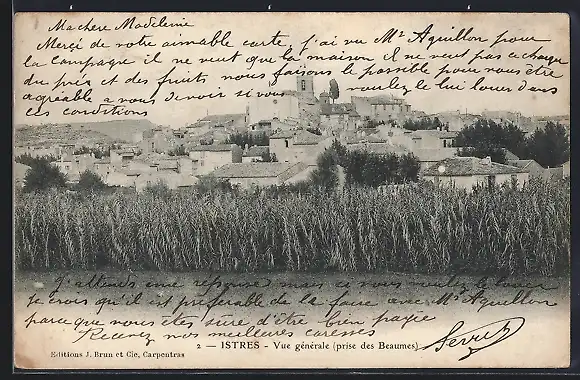 Ma chère Madeleine
Merçi de votre aimable carte, j'ai vu Mr Aquillon pour
la campagne il ne veut que la maison il ne veut pas ce charger
du prix et des fruits nous faisons le possible pour vous être
agréable a vous devoir si vous voulez le lui louer dans
ces conditions
J'attends une réponse mais si vous voulez le louer
je crois qu'il est préférable de la faire avec Mr Aquillon
parce que nous êtes sûre d'être bien payée
Recevez nos meilleures caresses
2 — ISTRES - Vue générale (prise des Beaumes)
Editions J. Brun et Cie, Carpentras